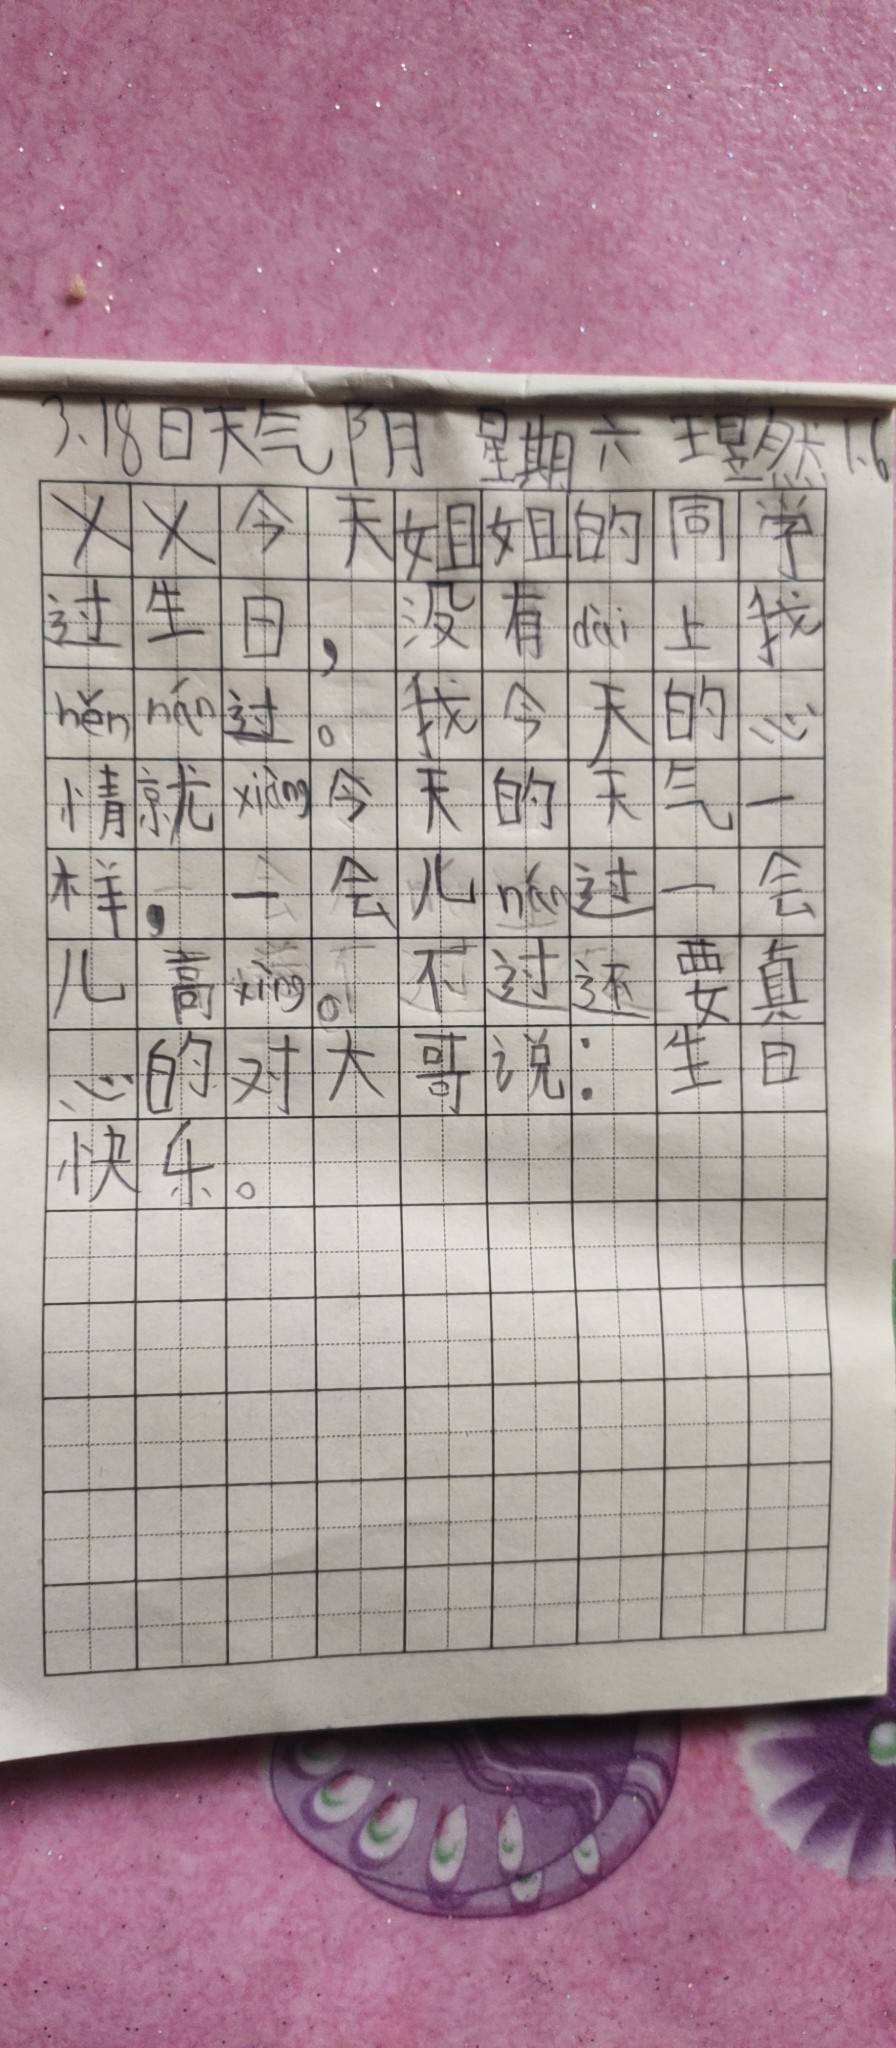 3.18日天气阴 星期六 王昱然 1.6
乂乂今天姐姐的同学
过生日，没有dài上我
hěn nán过。我今天的心
情就xiàng今天的天气一
样，一会儿nán过一会
儿高xìng。不过还要真
心的对大哥说：生日
快乐。